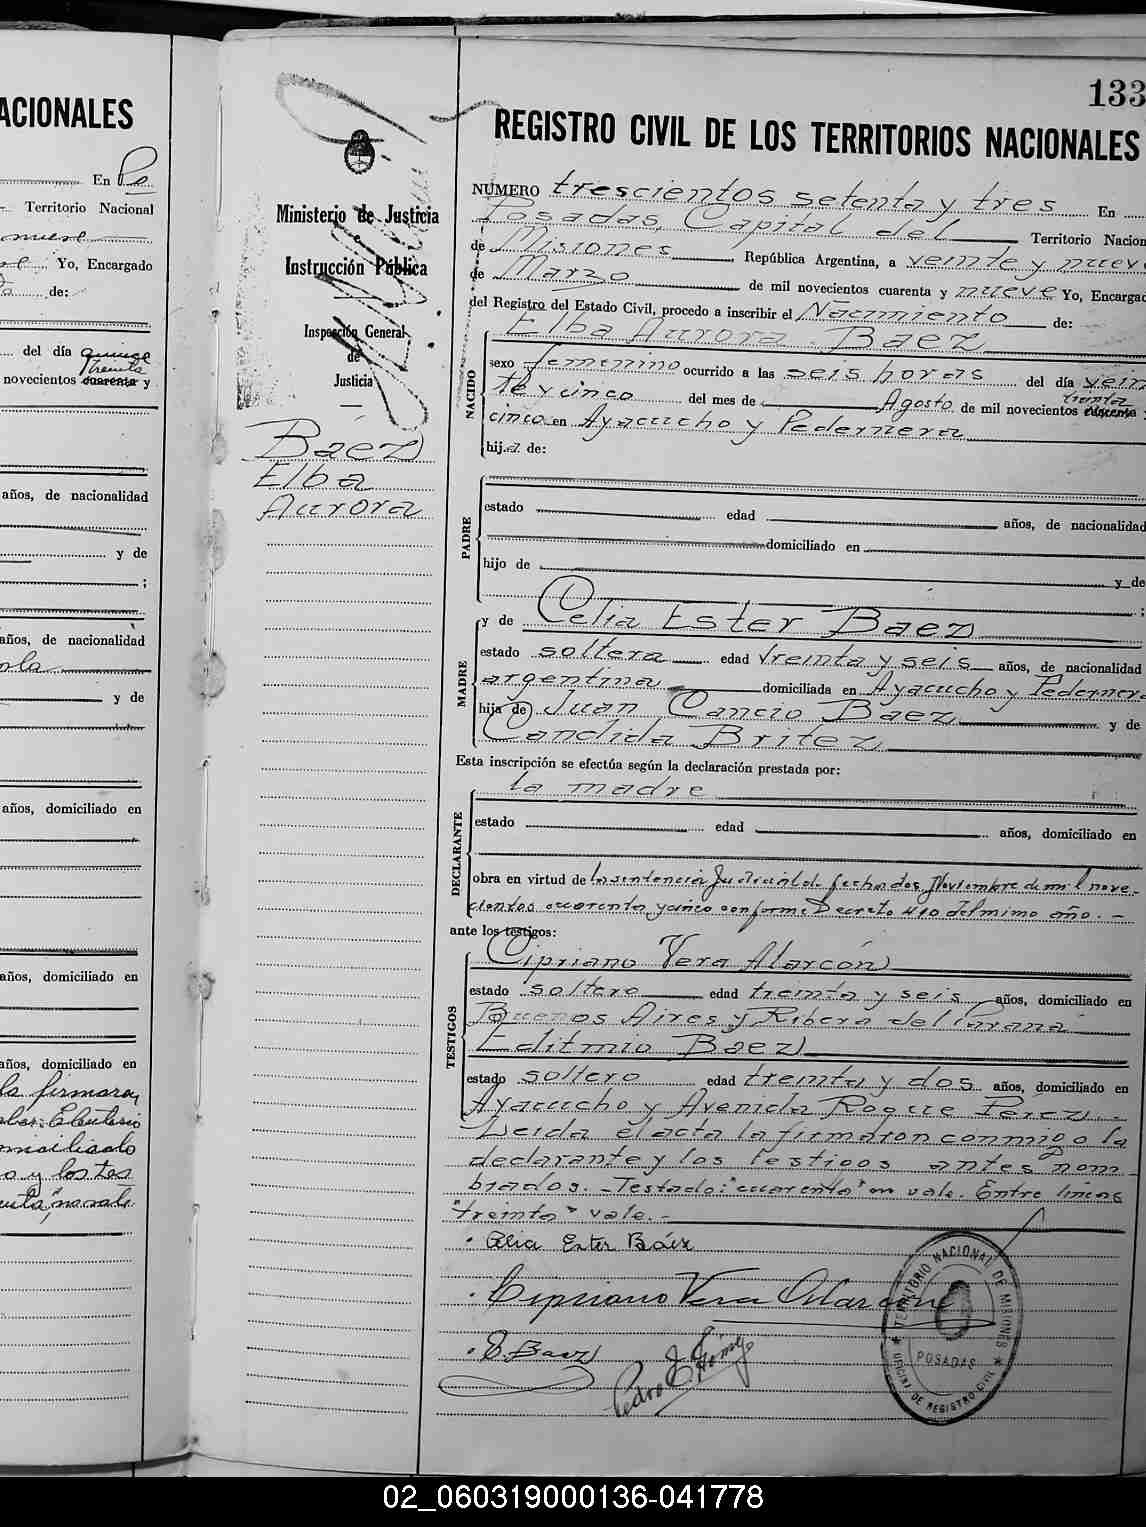 ACIONALES
En Po
Territorio Nacional
nueve
Yo, Encargado
de:
del día quince
treinta
novecientos cuarenta y
años, de nacionalidad
y de
;
años, de nacionalidad
y de
años, domiciliado en
años, domiciliado en
años, domiciliado en
la firmaron
Eleuterio
domiciliado
o y los tes
"no vale
133
REGISTRO CIVIL DE LOS TERRITORIOS NACIONALES
Ministerio de Justicia
Instrucción Pública
Inspección General
de
Justicia
Baez
Elba
Aurora
NÚMERO trescientos setenta y tres En
Posadas, Capital del Territorio Nacion
de Misiones República Argentina, a veinte y nueve
de Marzo de mil novecientos cuarenta y nueve Yo, Encargad
del Registro del Estado Civil, procedo a inscribir el Nacimiento de:
NACIDO
Elba Aurora Baez
sexo femenino ocurrido a las seis horas del día vein
te y cinco del mes de Agosto de mil novecientos cuarenta y
treinta
cinco en Ayacucho y Pedernera
hija de:
PADRE
estado edad años, de nacionalidad
domiciliado en
hijo de y de
;
MADRE
y de Celia Ester Baez
estado soltera edad treinta y seis años, de nacionalidad
argentina domiciliada en Ayacucho y Pedernera
hija de Juan Cancio Baez y de
Candida Britez
Esta inscripción se efectúa según la declaración prestada por:
DECLARANTE
la madre
estado edad años, domiciliado en
obra en virtud de la sentencia Judicial de fecha dos Noviembre de mil nove-
cientos cuarenta y cinco conforme Decreto 410 del mismo año. -
ante los testigos:
TESTIGOS
Cipriano Vera Alarcón
estado soltero edad treinta y seis años, domiciliado en
Buenos Aires y Ribera del Paraná
Editmio Baez
estado soltero edad treinta y dos años, domiciliado en
Ayacucho y Avenida Roque Perez. -
Leida el acta la firmaron conmigo la
declarante y los testigos antes nom
brados. - Testado: "cuarenta" no vale. Entre líneas
"treinta" vale. -
Celia Ester Báez
Cipriano Vera Alarcón
E. Baez
Pedro E. Gómez
TERRITORIO NACIONAL DE MISIONES
POSADAS
OFICINA DE REGISTRO CIVIL
02_060319000136-041778